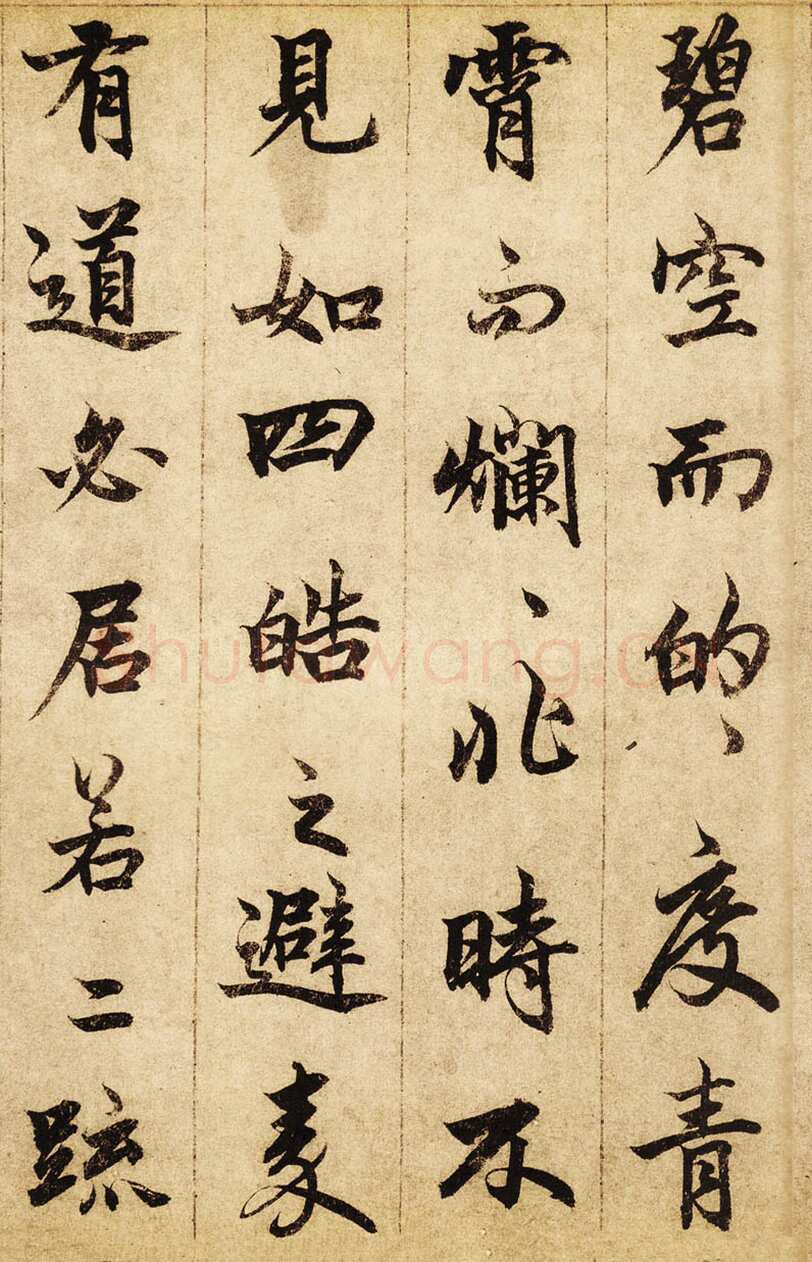 碧空而的〻度青
霄而爛〻非時不
見如四皓之避秦
有道必居若二䟽